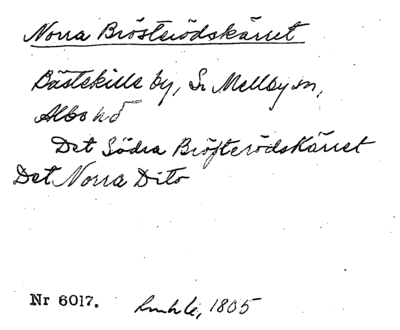 Norra Brösterödskärret
Bästekille by, S. Mellby sn,
Albo hd
Det Södra Brösterödskärret
Det Norra Dito
Nr 6017. 1805